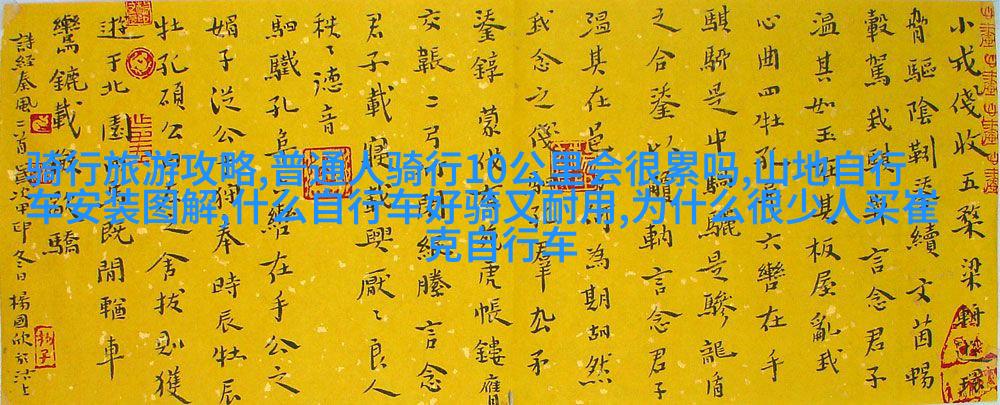 骑行旅游攻略,普通人骑行10公里会很累吗,山地自行
车安装图解,什么自行车好骑又耐用,为什么很少人买崔
克自行车
小戎俴收五楘梁輈
脅驅陰靷鋈續文茵暢
轂駕我騏言念君子
溫其如玉在其板屋亂我
心曲四牡孔六轡在手
騏騮是中騧驪是驂龍盾
之合鋈以觼軜言念君子
溫其在邑為期胡然
我念之俴孔羣厹矛
鋈錞蒙伐有虎帳鏤膺
交韔二弓緄縢言念
君子載寢載興厭〻良人
秩〻德音
駟驖孔阜在手公之
媚子從公狩奉時辰牡辰
牡孔碩公之舍拔則獲
遊于北園既閒輶車
鸞鑣載驕
詩經秦風二首歲次甲申冬日楊國欣於沽上